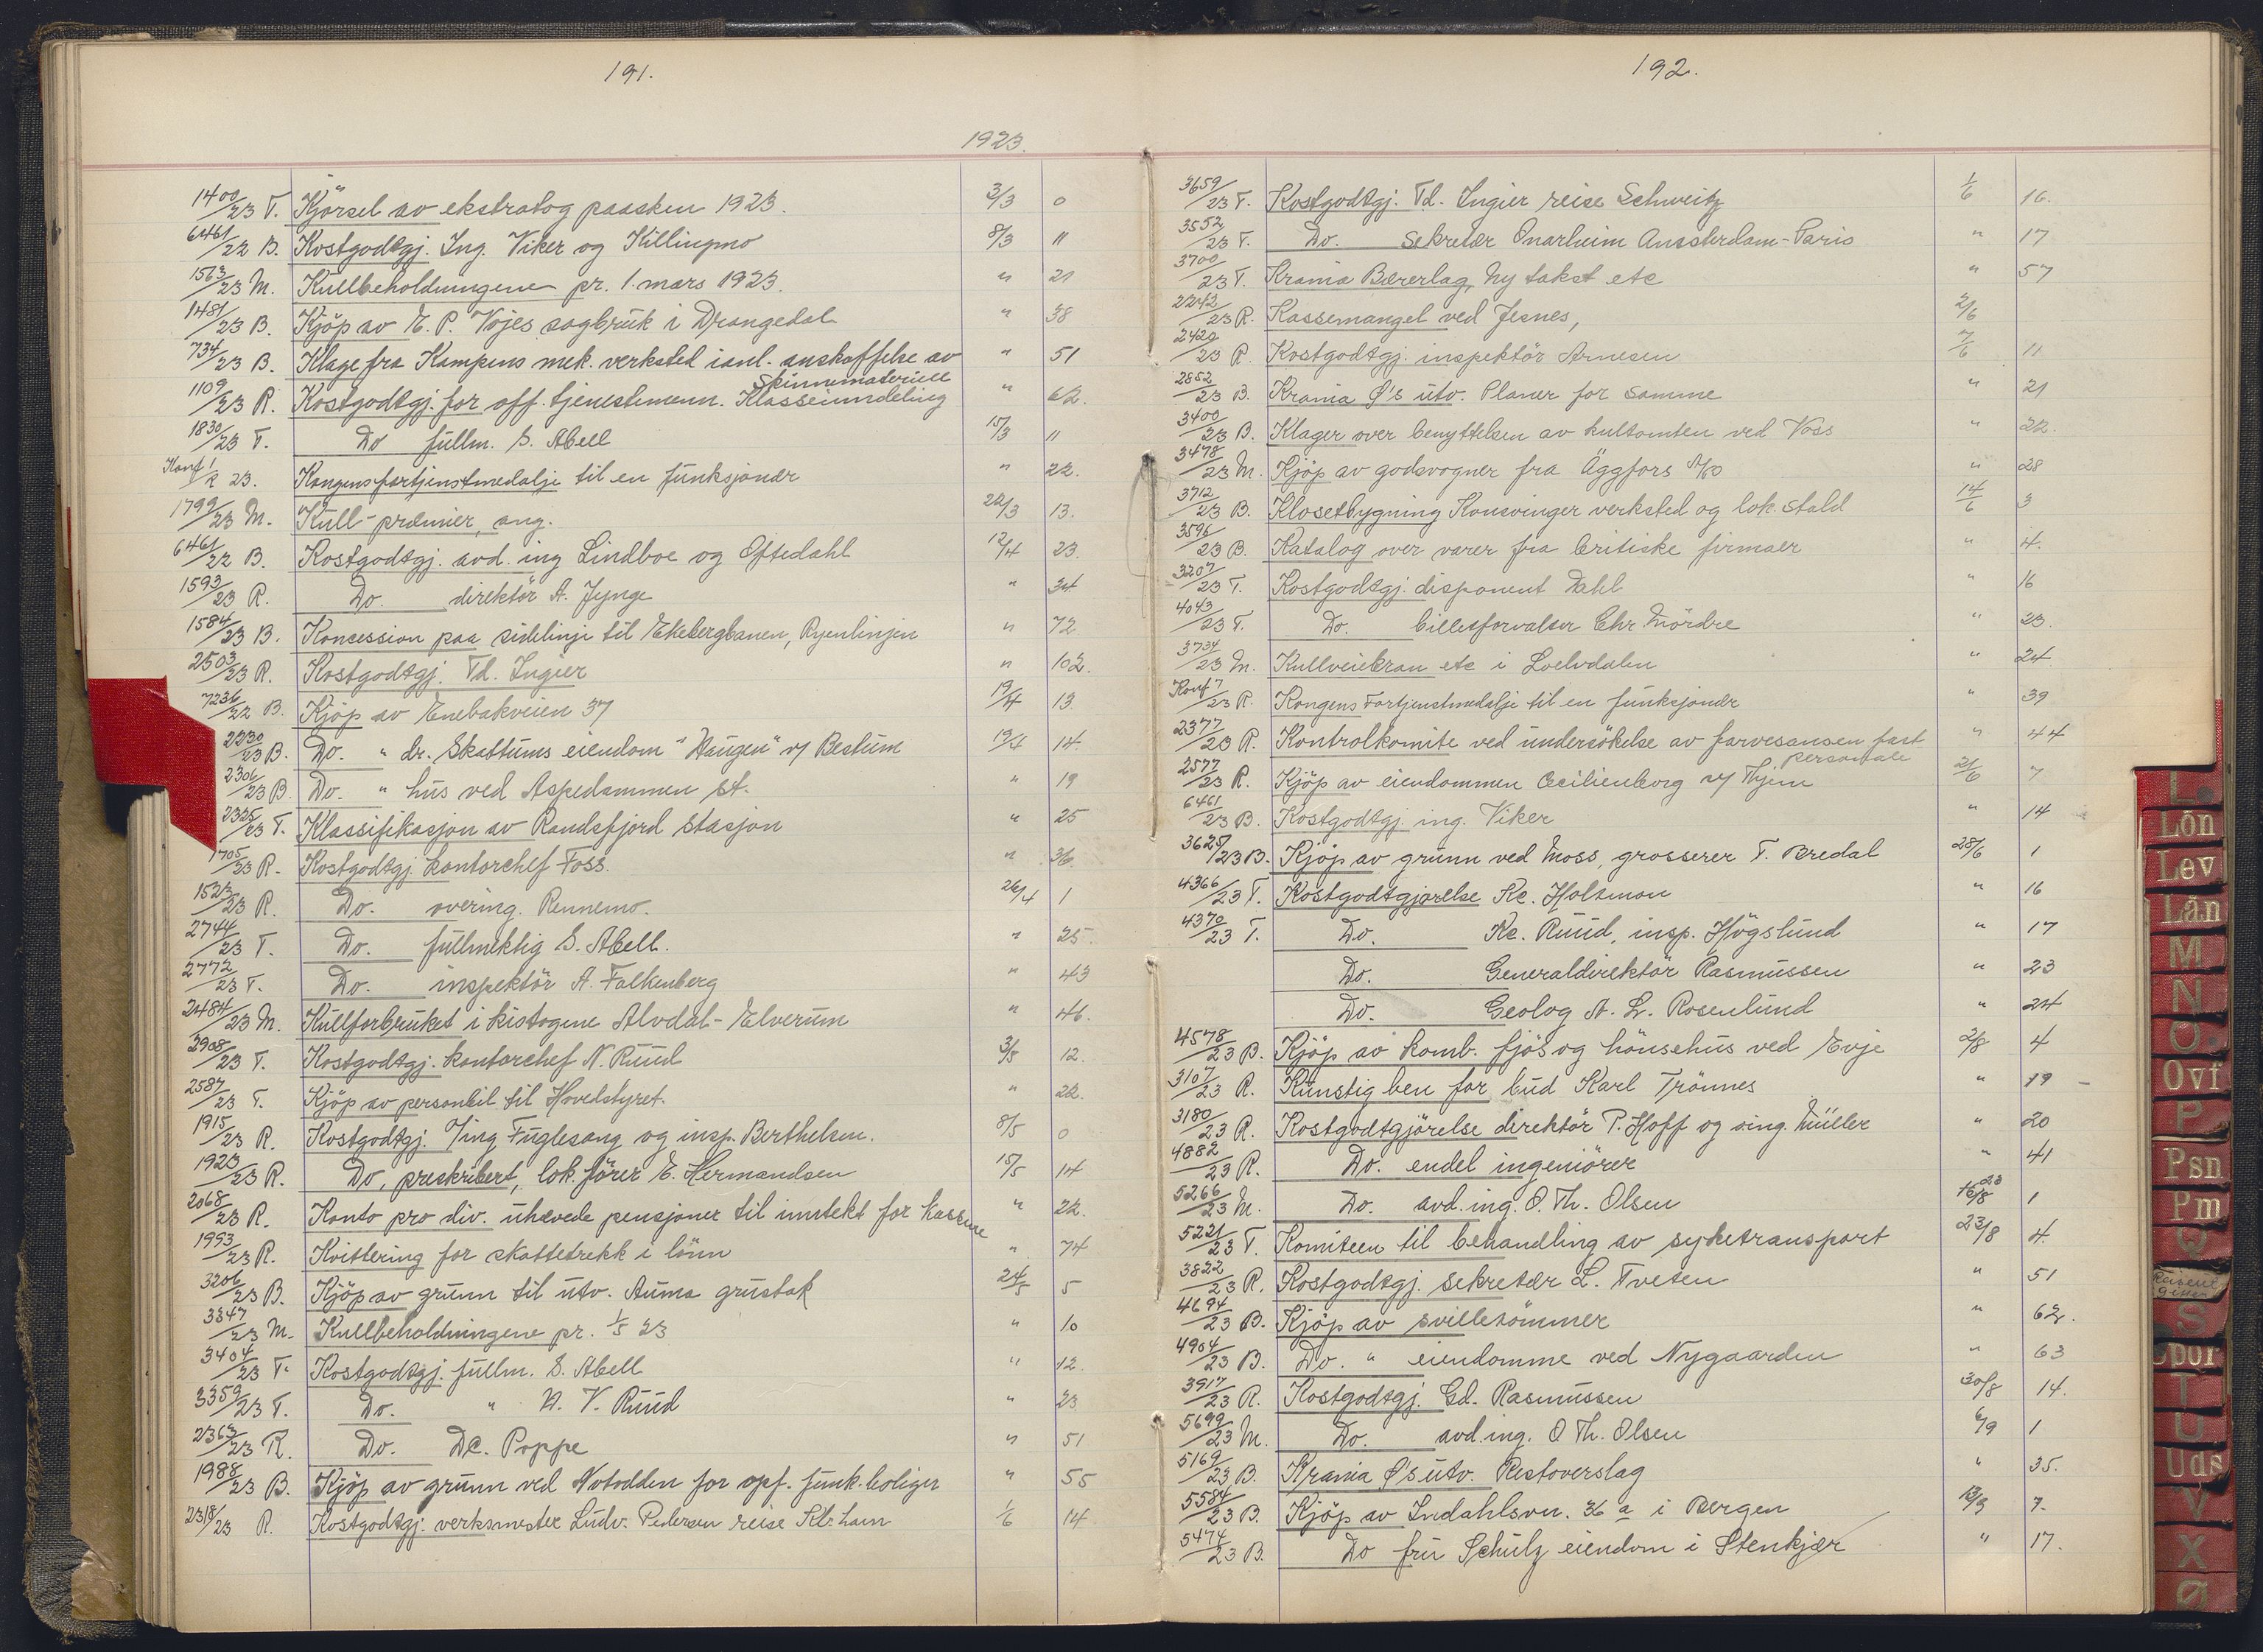 191.
1923.
1400/23 T. Kjörsel av ekstratog paasken 1923. 3/3 0
6461/22 B. Kostgodtgj. Ing. Viker og Killingmo 8/3 11
1563/23 M. Kullbeholdningene pr. 1. mars 1923. " 21
1481/23 B. Kjöp av E. P. Vojes sagbruk i Drangedal " 38
734/23 B. Klage fra Kampens mek. verksted i anl. anskaffelse av " 51
Skinnemateriell
1109/23 R. Kostgodtgj. for off. tjenestemenn. Klasseinndeling " 62.
1830/23 T. Do fullm. S. Abell 15/3 11
Konf 1/R 23. Kongens fortjenstmedalje til en funksjonær " 22.
1799/23 M. Kull-præmier, ang. 22/3 13.
6461/22 B. Kostgodtgj. avd. ing Lindboe og Oftedahl 12/4 23.
1593/23 R. Do. direktör A. Jynge " 34
1584/23 B. Koncession paa sidelinje til Ekebergbanen, Ryenlinjen " 72
2503/23 R. Kostgodtgj. Td. Ingier " 102.
7236/22 B. Kjöp av Enebakveien 37 19/4 13
2230/23 B. Do. " dr. Skattums eiendom "Haugen" v/ Bestum 19/4 14
2306/23 B Do. " hus ved Aspedammen st. " 19
2325/23 T. Klassifikasjon av Randsfjord stasjon " 25
1705/23 R. Kostgodtgj. kontorchef Foss. " 36.
1523/23 R. Do. overing. Rennemo. 26/4 1
2744/23 T. Do. fullmektig S. Abell. " 25.
2772/23 T. Do. inspektör A. Falkenberg " 43
2484/23 M. Kullforbruket i kistogene Alvdal-Elverum " 46.
2908/23 T. Kostgodtgj. kontorchef N. Ruud 3/5 12.
2587/23 T. Kjöp av personbil til Hovedstyret. " 22.
1915/23 R. Kostgodtgj. /ing Fuglesang og insp. Berthelsen. 8/5 0
1923/23 R. Do, preskribert, lok. förer E. Hermandsen 15/5 14
2068/23 R. Konto pro div. uhævede pensjoner til inntekt for kassene " 22.
1993/23 R. Kvittering for skattetrekk i lönn " 74
3206/23 B. Kjöp av grunn til utv. Auma grustak 24/5 5
3347/23 M. Kullbeholdningene pr. 1/5 23 " 10
3404/23 T. Kostgodtgj. fullm. S. Abell " 12.
3359/23 T. Do. " N. V. Ruud " 23
2363/23 R. Do. Dc. Poppe " 51
1988/23 B. Kjöp av grunn ved Notodden for opf. funk. boliger " 55
2318/23 R. Kostgodtgj. verksmester Ludv. Pedersen reise 1/6 14
192.
3659/23 T. Kostgodtgj. Td. Ingier reise Schweitz 1/6 16.
3552/23 T. Do. Sekretær Onarheim Amsterdam-Paris " 17
3700/23 T. Krania Bærerlag, Ny takst etc " 57
2242/23 R. Kassemangel ved Jesnes, 2/6
2420/23 R. Kostgodtgj. inspektör Arnesen 7/6 11
2852/23 B. Krania Ø's utv. Planer for samme " 21
3400/23 B. Klager over benyttelsen av kultomten ved Voss " 22.
3478/23 M. Kjöp av godsvogner fra Äggfors A/B " 28
3712/23 B. Klosetbygning Konsvinger verksted og lok. stald 14/6 3
3596/23 B. Katalog over varer fra britiske firmaer " 4.
3207/23 T. Kostgodtgj. disponent Dahl " 16
4043/23 T. Do. billetforvalter Chr. Mördre " 23.
3734/23 M. Kullveiekran etc i Loelvdalen " 24
Konf 7/23 R. Kongens Fortjenstmedalje til en funksjonær " 39
2377/23 R. Kontrolkomite ved undersökelse av farvesansen fast " 44
personale
2577/23 R. Kjöp av eiendommen Cecilienborg v/ Hjem 21/6 7
6461/23 B. Kostgodtgj. ing. Viker " 14
3625/23 B. Kjöp av grunn ved Moss, grosserer T. Bredal 28/6 1
4366/23 T. Kostgodtgjörelse Kc. Holtmon " 16
4370/23 T. Do. Kc. Ruud, insp. Högslund " 17
Do. Generaldirektör Rasmussen " 23
Do. Geolog A. L. Rosenlund " 24
4578/23 B. Kjöp av komb. fjös og hönsehus ved Evje 2/8 4
3107/23 R. Kunstig ben for bud Karl Trönnes " 19
3180/23 R. Kostgodtgjörelse direktör P. Hoff og oing. Müller " 20
4882/23 R. Do. endel ingeniörer " 41
5266/23 M. Do. avd. ing. O. Th. Olsen 16/8 23 1
5221/23 T. Komiteen til behandling av syketransport 23/8 4.
3822/23 R. Kostgodtgj. sekretær L. Tveten " 51
4694/23 B. Kjöp av svilletömmer " 62.
4904/23 B. Do. " eiendomme ved Nygaarden " 63
3917/23 R. Kostgodtgj. Gd. Rasmussen 30/8 14.
5699/23 M. Do. avd. ing. O Th. Olsen 6/9 1
5169/23 B. Krania Ø's utv. Restoverslag " 35.
5584/23 B. Kjöp av Indahlsvn. 36 a i Bergen 13/9 7.
5474/23 B. Do fru Schulz eiendom i Stenkjær " 17.
L
Lön
Lev
Lån
M
N
O
Ovf
P
Psn
Pm
Q
S
Spor
T
U
Uds
V
X
Ø